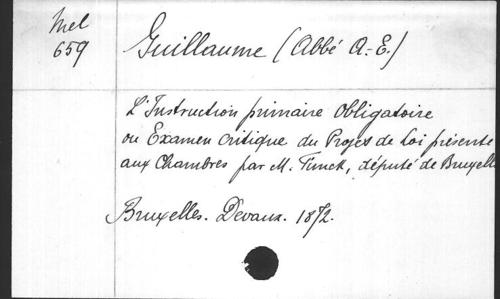 Mel
659
Guillaume (Abbé A.-E.)
L'Instruction primaire obligatoire
ou Examen critique du Projes de Loi présente
aux Chambres par M. Funck, député de Bruxelle
Bruxelles. Devaux. 1872.